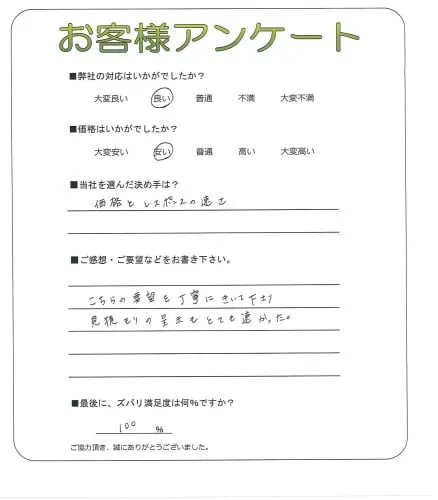 お客様アンケート
■弊社の対応はいかがでしたか？
大変良い 良い 普通 不満 大変不満
■価格はいかがでしたか？
大変安い 安い 普通 高い 大変高い
■当社を選んだ決め手は？
価格とレスポンスの速さ
■ご感想・ご要望などをお書き下さい。
こちらの要望を丁寧にきいて下さり
見積もりの呈示もとても速かった。
■最後に、ズバリ満足度は何%ですか？
100 %
ご協力頂き、誠にありがとうございました。